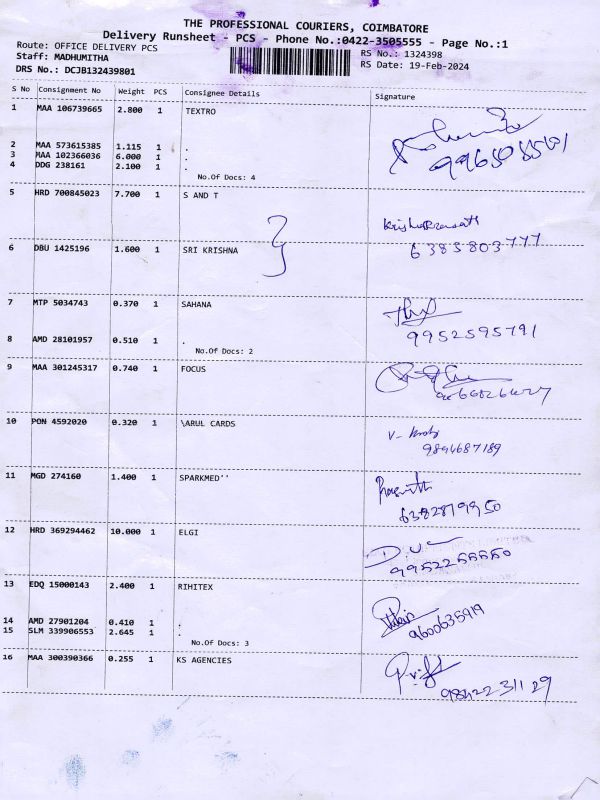 THE PROFESSIONAL COURIERS, COIMBATORE
Delivery Runsheet - PCS - Phone No.:0422-3505555 - Page No.:1
Route: OFFICE DELIVERY PCS
RS No.: 1324398
Staff: MADHUMITHA
RS Date: 19-Feb-2024
DRS No.: DCJB132439801
S No Consignment No Weight PCS Consignee Details Signature
1 MAA 106739665 2.800 1 TEXTRO
2 MAA 573615385 1.115 1 .
3 MAA 102366036 6.000 1 .
4 DDG 238161 2.100 1 .
No.Of Docs: 4
5 HRD 700845023 7.700 1 S AND T
6 DBU 1425196 1.600 1 SRI KRISHNA
6383803777
7 MTP 5034743 0.370 1 SAHANA
9952595791
8 AMD 28101957 0.510 1 .
No.Of Docs: 2
9 MAA 301245317 0.740 1 FOCUS
10 PON 4592020 0.320 1 \ARUL CARDS
9894687189
11 MGD 274160 1.400 1 SPARKMED''
6382819950
12 HRD 369294462 10.000 1 ELGI
13 EDQ 15000143 2.400 1 RIHITEX
9600635919
14 AMD 27901204 0.410 1 .
15 SLM 339906553 2.645 1 .
No.Of Docs: 3
16 MAA 300390366 0.255 1 KS AGENCIES
9842231129